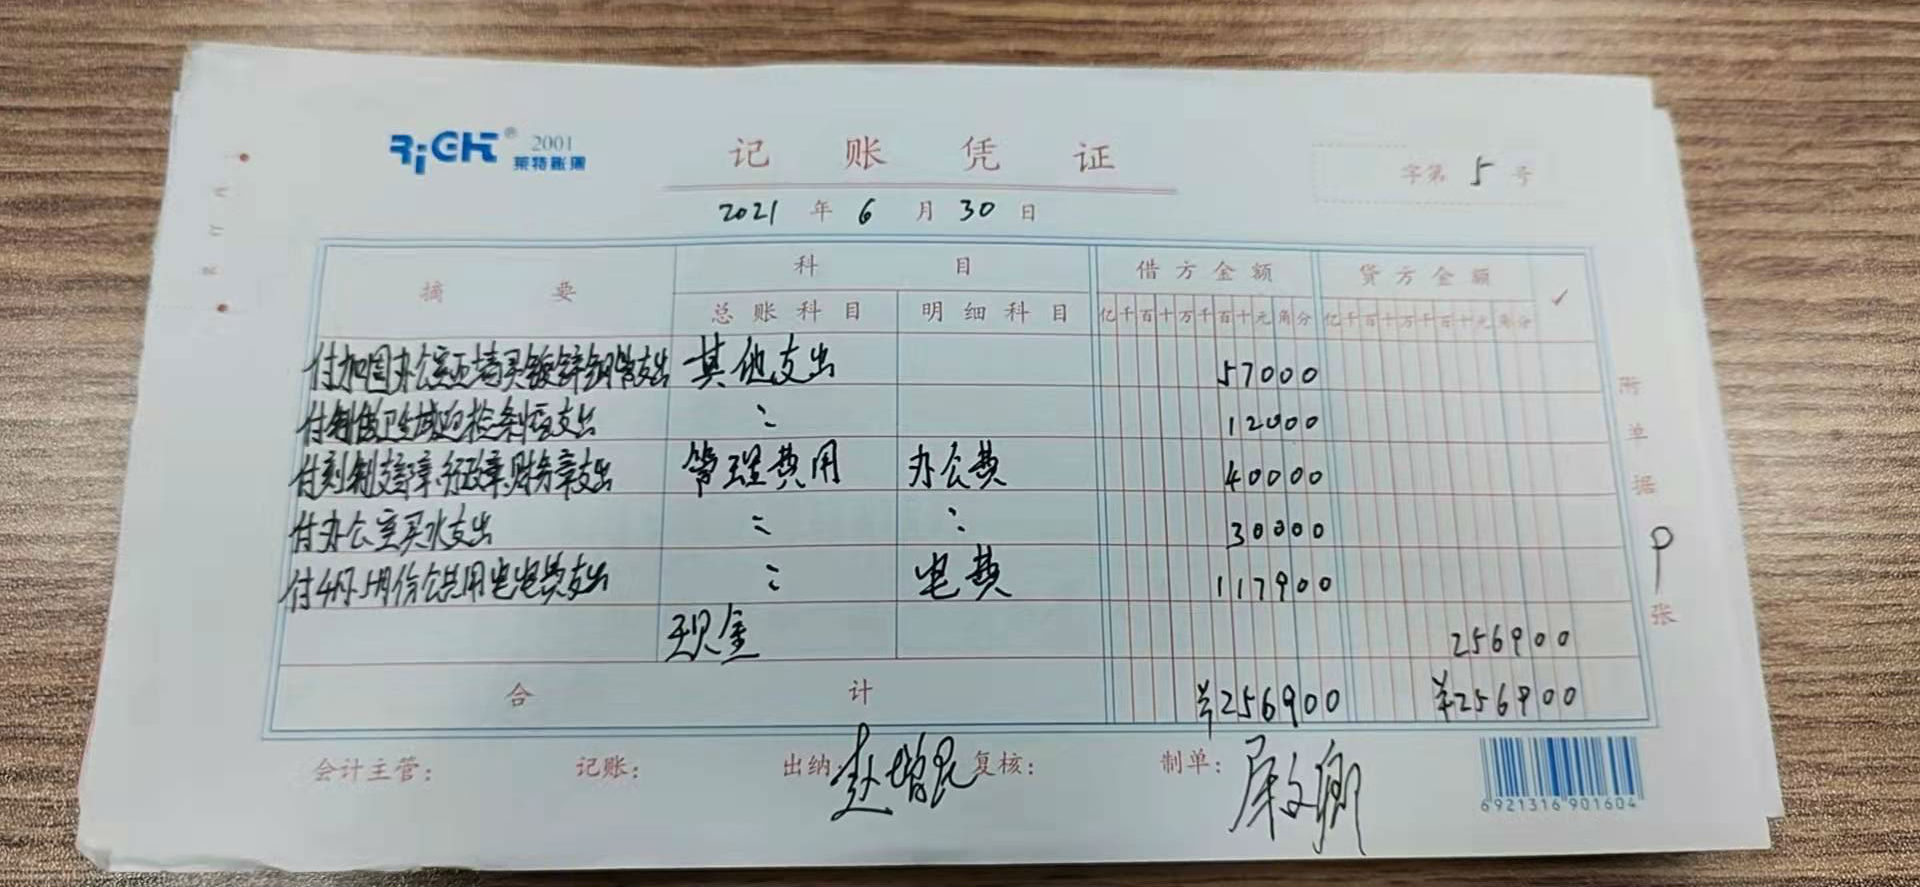 RiGHT® 2001
莱特账簿
记账凭证
字第 5 号
2021 年 6 月 30 日
摘要 科目 借方金额 贷方金额 ✓
总账科目 明细科目 亿千百十万千百十元角分 亿千百十万千百十元角分
付加固办公室围墙买镀锌钢管支出 其他支出 57000
付制做卫生域的检条框支出 〃 12000
付刻制支部章、行政章、财务章支出 管理费用 办公费 40000
付办公室买水支出 〃 〃 30000
付4月、5月份公共用电电费支出 〃 电费 117900
现金 256900
合计 ¥256900 ¥256900
附单据 9 张
会计主管: 记账: 出纳 赵增昆 复核: 制单: 屈文卿
6921316901604